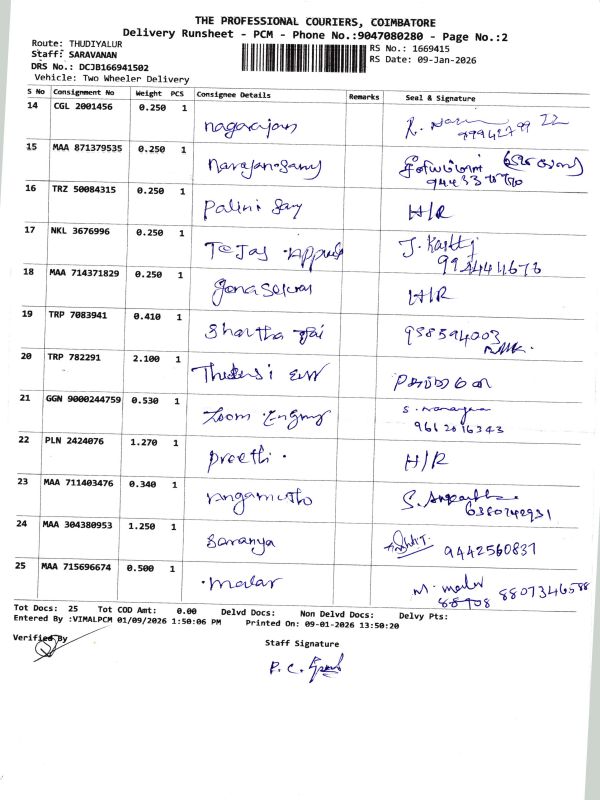 THE PROFESSIONAL COURIERS, COIMBATORE
Delivery Runsheet - PCM - Phone No.:9047080280 - Page No.:2
Route: THUDIYALUR
Staff: SARAVANAN
DRS No.: DCJB166941502
Vehicle: Two Wheeler Delivery
RS No.: 1669415
RS Date: 09-Jan-2026
S No Consignment No Weight PCS Consignee Details Remarks Seal & Signature
14 CGL 2001456 0.250 1 nagarajan
15 MAA 871379535 0.250 1 Narayanasamy
16 TRZ 50084315 0.250 1 Palinisamy H/R
17 NKL 3676996 0.250 1 Tejas J. Karthi
18 MAA 714371829 0.250 1 gunasekar H/R
19 TRP 7083941 0.410 1 938594003
20 TRP 782291 2.100 1
21 GGN 9000244759 0.530 1 Zoom Engg S. Narayana
9612016343
22 PLN 2424076 1.270 1 preethi . H/R
23 MAA 711403476 0.340 1 rangamutho S.
6380742931
24 MAA 304380953 1.250 1 Saranya 9442560837
25 MAA 715696674 0.500 1 malar M. malar 8807346588
88908
Tot Docs: 25 Tot COD Amt: 0.00 Delvd Docs: Non Delvd Docs: Delvy Pts:
Entered By :VIMALPCM 01/09/2026 1:50:06 PM Printed On: 09-01-2026 13:50:20
Verified By
Staff Signature
P. C.